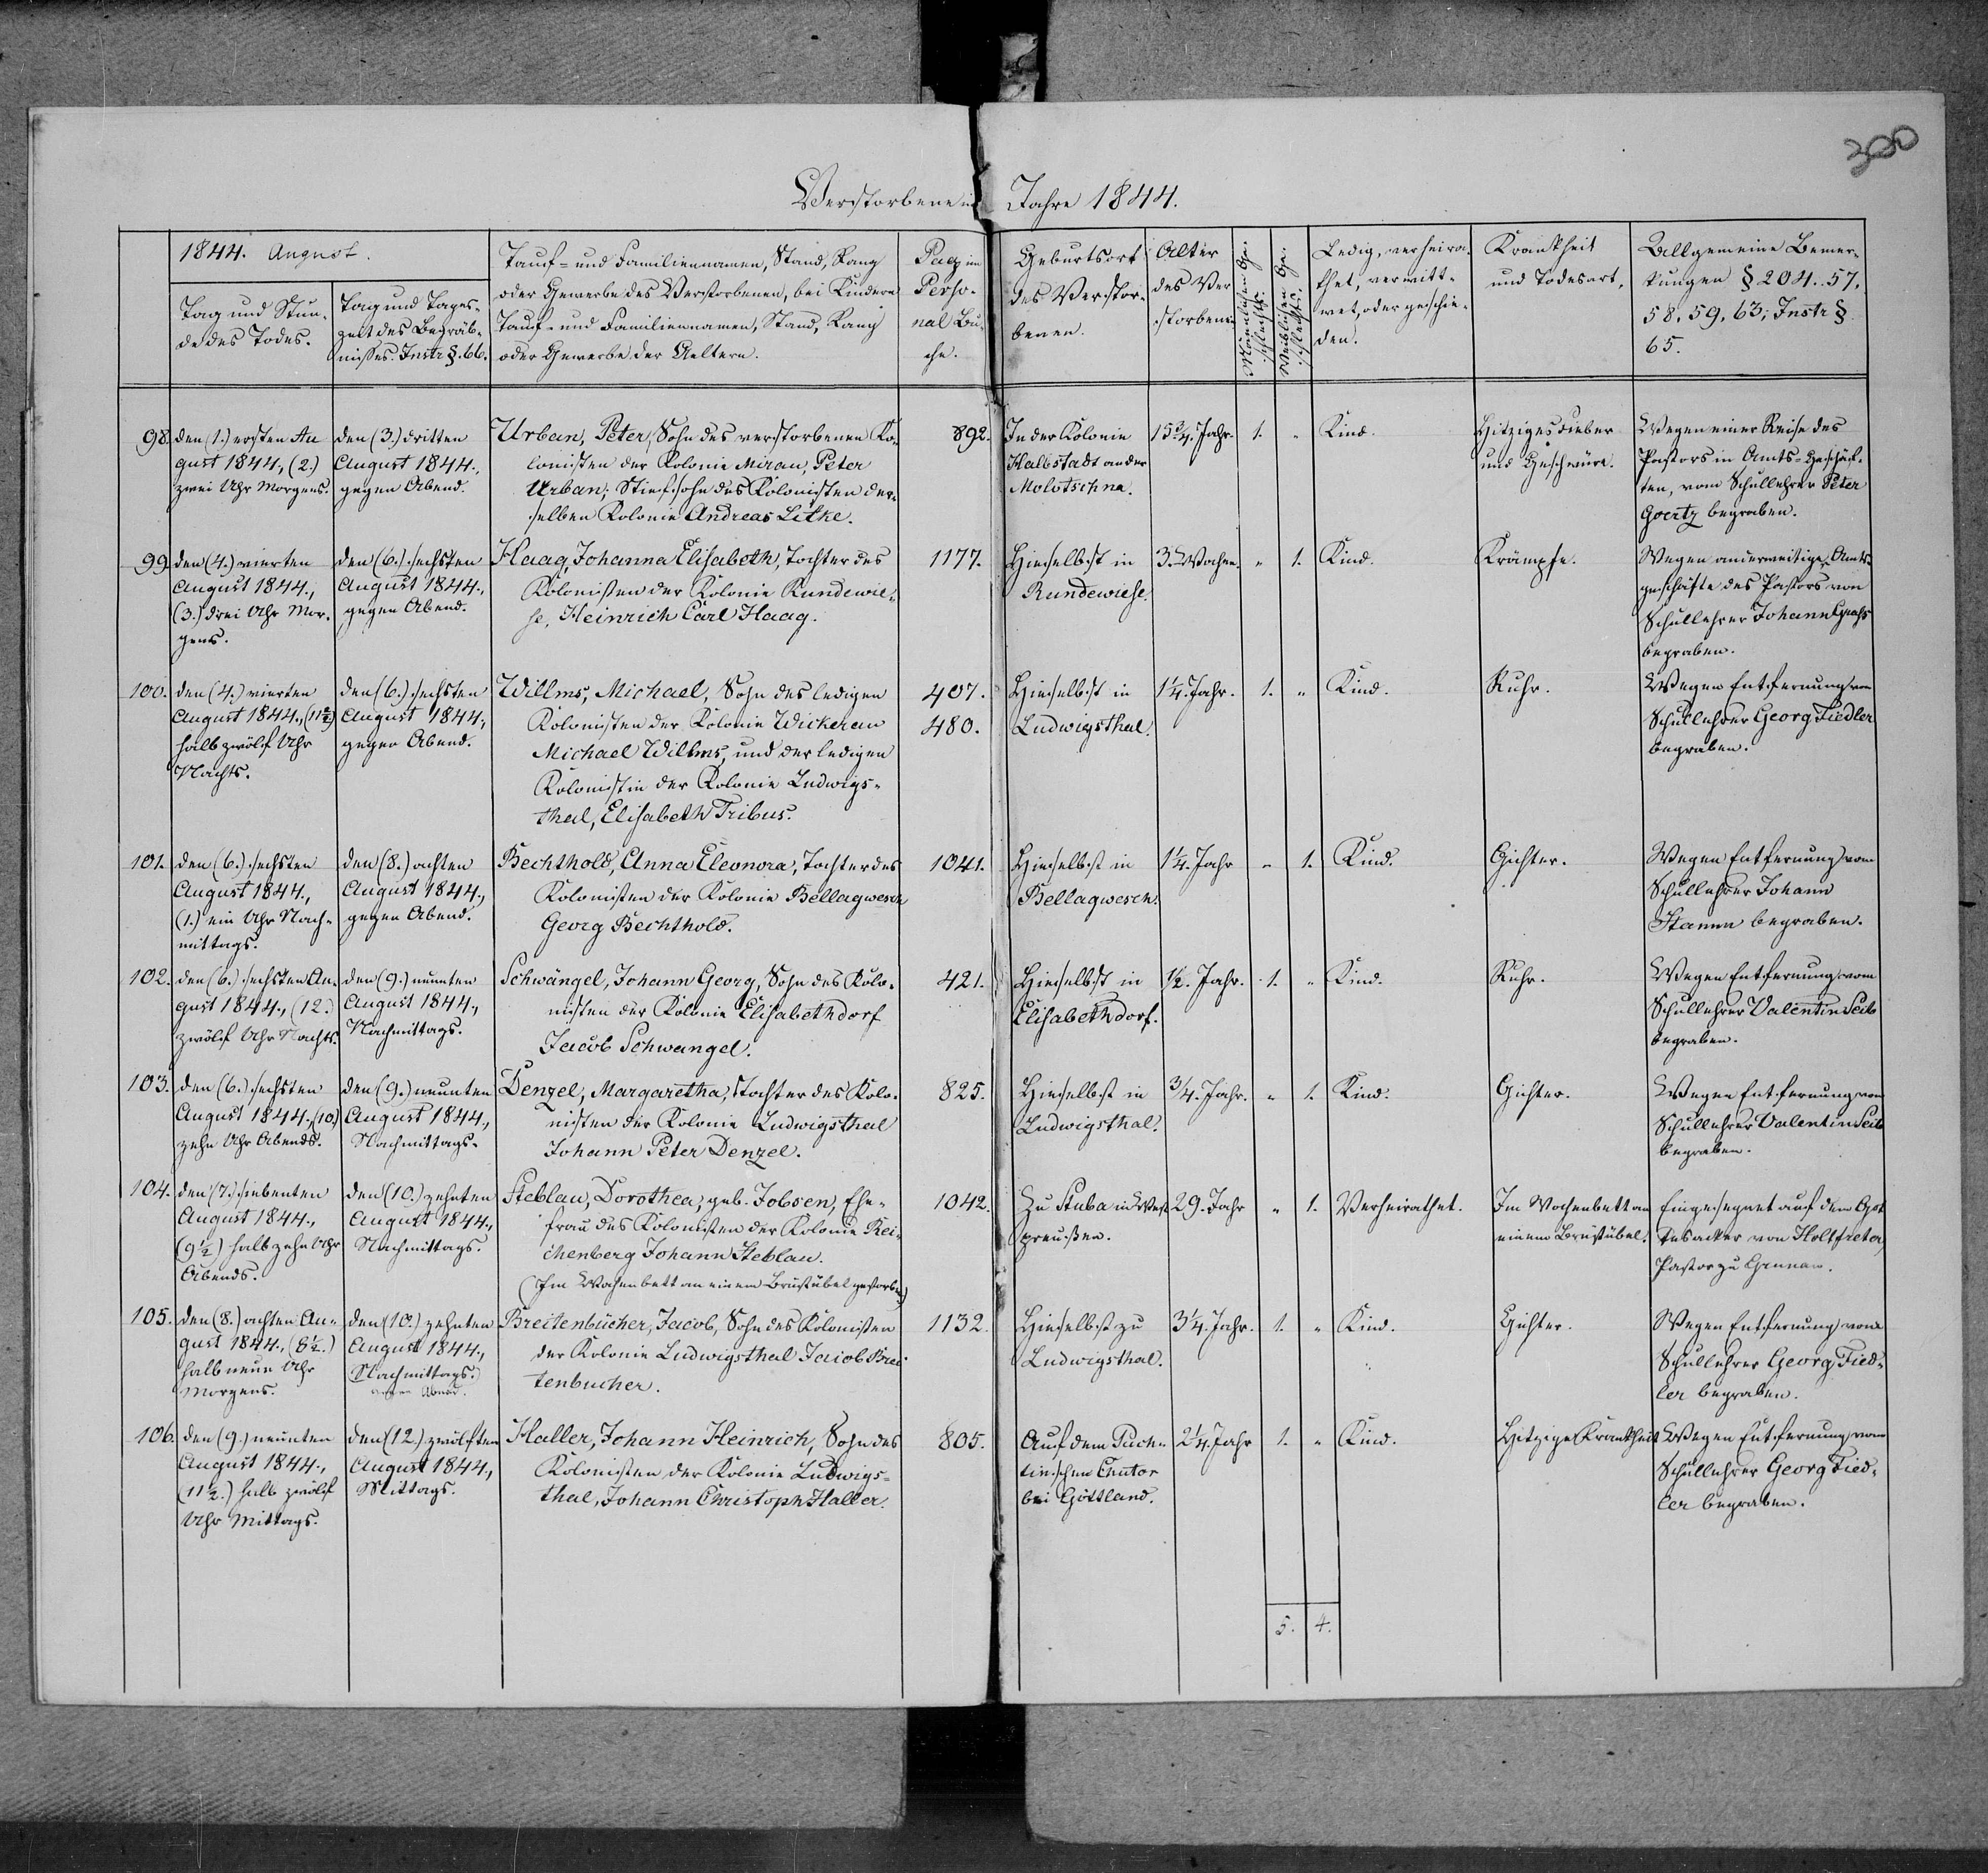 300
Verstorbene im Jahre 1844.
1844. August.
Tag und Stun-
de des Todes.
Tag und Tages-
zeit des Begräb-
nisses. Instr. §. 66.
Tauf- und Familiennamen, Stand, Rang
oder Gewerbe des Verstorbenen, bei Kindern
Tauf- und Familiennamen, Stand, Rang
oder Gewerbe der Aeltern.
Pag. im
Perso-
nal Bu-
che.
Geburtsort
des Verstor-
benen.
Alter
des Ver
storbenen
Männlichen Ge-
schlechts.
Weiblichen Ge-
schlechts.
Ledig, verheira-
thet, verwitt-
wet, oder geschie-
den.
Krankheit
und Todesart.
Allgemeine Bemer-
kungen § 204. 57.
58. 59. 63; Instr §
65.
98. den (1.) ersten Au
gust 1844., (2.)
zwei Uhr Morgens.
den (3.) dritten
August 1844.,
gegen Abend.
Urban, Peter, Sohn des verstorbenen Ko-
lonisten der Kolonie Mirau, Peter
Urban; Stiefsohn des Kolonisten der-
selben Kolonie Andreas Litke.
892.
In der Kolonie
Halbstadt an der
Molotschna.
15 3/4. Jahr.
1.
"
Kind.
Hitziges Fieber
und Geschwüre.
Wegen einer Reise des
Pastors in Amts-Geschäf-
ten, vom Schullehrer Peter
Goertz begraben.
99. den (4.) vierten
August 1844.,
(3.) drei Uhr Mor-
gens.
den (6.) sechsten
August 1844.,
gegen Abend.
Haag, Johanna Elisabeth, Tochter des
Kolonisten der Kolonie Rundewie-
se, Heinrich Carl Haag.
1177.
Hieselbst in
Rundewiese.
3. Wochen.
"
1.
Kind.
Krämpfe.
Wegen anderweitige Amts-
geschäfte des Pastors von
Schullehrer Johann
begraben.
100. den (4.) vierten
August 1844., (11 1/2)
halb zwölf Uhr
Nachts.
den (6.) sechsten
August 1844.,
gegen Abend.
Willms, Michael, Sohn des ledigen
Kolonisten der Kolonie Wickerau
Michael Willms, und der ledigen
Kolonistin der Kolonie Ludwigs-
thal, Elisabeth Tribus.
407.
480.
Hieselbst in
Ludwigsthal.
1 1/4. Jahr.
1.
"
Kind.
Ruhr.
Wegen Entfernung von
Schullehrer Georg Fiedler
begraben.
101. den (6.) sechsten
August 1844.,
(1.) ein Uhr Nach-
mittags.
den (8.) achten
August 1844.,
gegen Abend.
Bechthold, Anna Eleonora, Tochter des
Kolonisten der Kolonie Bellagwesch
Georg Bechthold.
1041.
Hieselbst in
Bellagwesch.
1 1/4. Jahr
"
1.
Kind.
Gichter.
Wegen Entfernung vom
Schullehrer Johann
Stamm begraben.
102. den (6.) sechsten Au-
gust 1844., (12.)
zwölf Uhr Nachts.
den (9.) neunten
August 1844.,
Nachmittags.
Schwängel, Johann Georg, Sohn des Kolo-
nisten der Kolonie Elisabethdorf
Jacob Schwangel.
421.
Hieselbst in
Elisabethdorf.
1/2. Jahr.
1.
"
Kind.
Ruhr.
Wegen Entfernung vom
Schullehrer Valentin Seib
begraben.
103. den (6.) sechsten
August 1844., (10.)
zehn Uhr Abends.
den (9.) neunten
August 1844.,
Nachmittags.
Denzel, Margaretha, Tochter des Kolo-
nisten der Kolonie Ludwigsthal
Johann Peter Denzel.
825.
Hieselbst in
Ludwigsthal.
3/4. Jahr.
"
1.
Kind.
Gichter.
Wegen Entfernung von
Schullehrer Valentin Seib
begraben.
104. den (7.) siebenten
August 1844.,
(9 1/2) halb zehn Uhr
Abends.
den (10.) zehnten
August 1844.,
Nachmittags.
Steblau, Dorothea, geb. Jobsen, Ehe-
frau des Kolonisten der Kolonie Rei-
chenberg Johann Steblau.
(Im Wochenbett an einem Brustübel gestorben)
1042.
Zu Stuba in West
preußen.
29. Jahr
"
1.
Verheirathet.
Im Wochenbett an
einem Brustübel.
Eingesegnet auf dem Got
tesacker von Holtfreter,
Pastor zu Grunau.
105. den (8.) achten Au-
gust 1844., (8 1/2.)
halb neun Uhr
Morgens.
den (10.) zehnten
August 1844.,
Nachmittags.
gegen Abend.
Breitenbücher, Jacob, Sohn des Kolonisten
der Kolonie Ludwigsthal Jacob Brei-
tenbucher.
1132.
Hieselbst zu
Ludwigsthal.
3 1/4. Jahr.
1.
"
Kind.
Gichter.
Wegen Entfernung vom
Schullehrer Georg Fied-
ler begraben.
106. den (9.) neunten
August 1844.,
(11 1/2.) halb zwölf
Uhr Mittags.
den (12.) zwölften
August 1844.,
Mittags.
Haller, Johann Heinrich, Sohn des
Kolonisten der Kolonie Ludwigs-
thal, Johann Christoph Haller.
805.
Auf dem Puch-
tinschen Chutor
bei Göttland.
2 1/4. Jahr
1.
"
Kind.
Hitzige Krankheit
Wegen Entfernung vom
Schullehrer Georg Fied-
ler begraben.
5. 4.